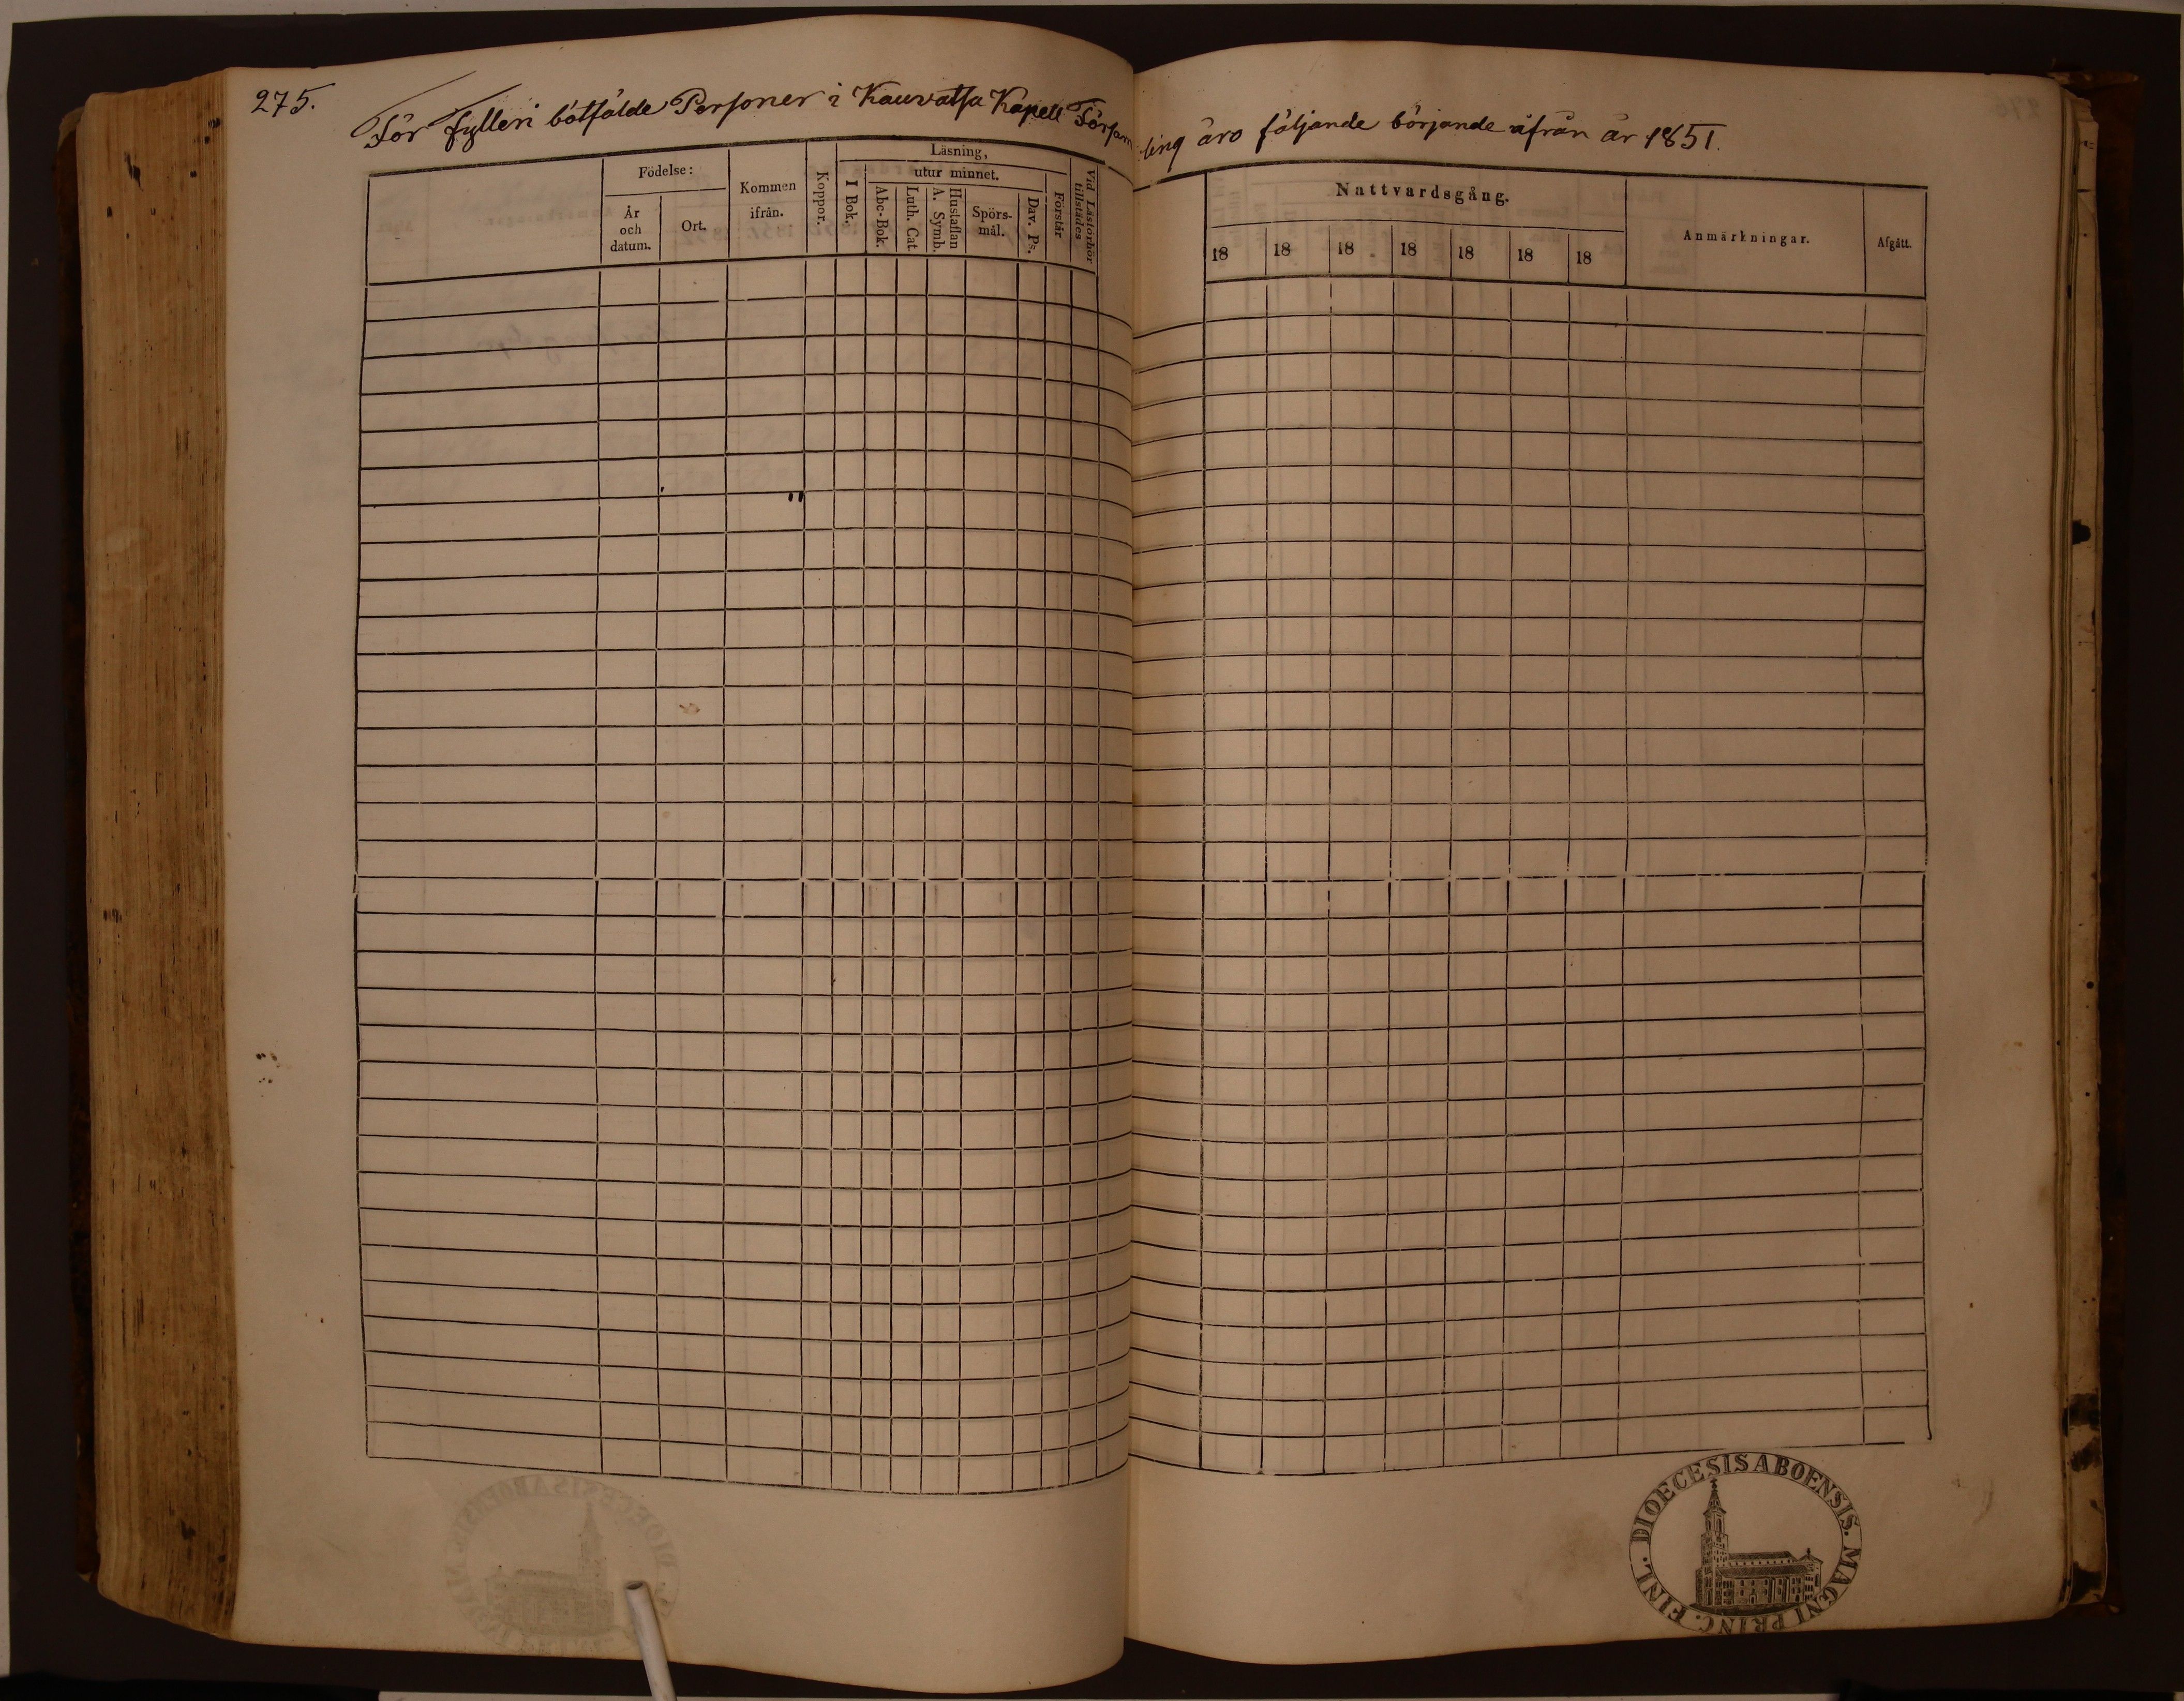 275.
För fylleri bötfälde Personer i Kauvatsa Kapell Försam-
ling äro följande börjande ifrån år 1851.
Födelse:
År
och
datum.
Ort.
Kommen
ifrån.
Koppor.
Läsning,
I Bok.
utur minnet.
Abc-Bok.
Luth. Cat.
A. Symb.
Hustaflan
Spörs-
mål.
Dav. Ps.
Förstår
Vid Läsförhör
tillstädes
Nattvardsgång.
18 18 18 18 18 18 18
Anmärkningar.
Afgått.
DIOECESIS ABOENSIS. MAGNI PRINC. FINL.